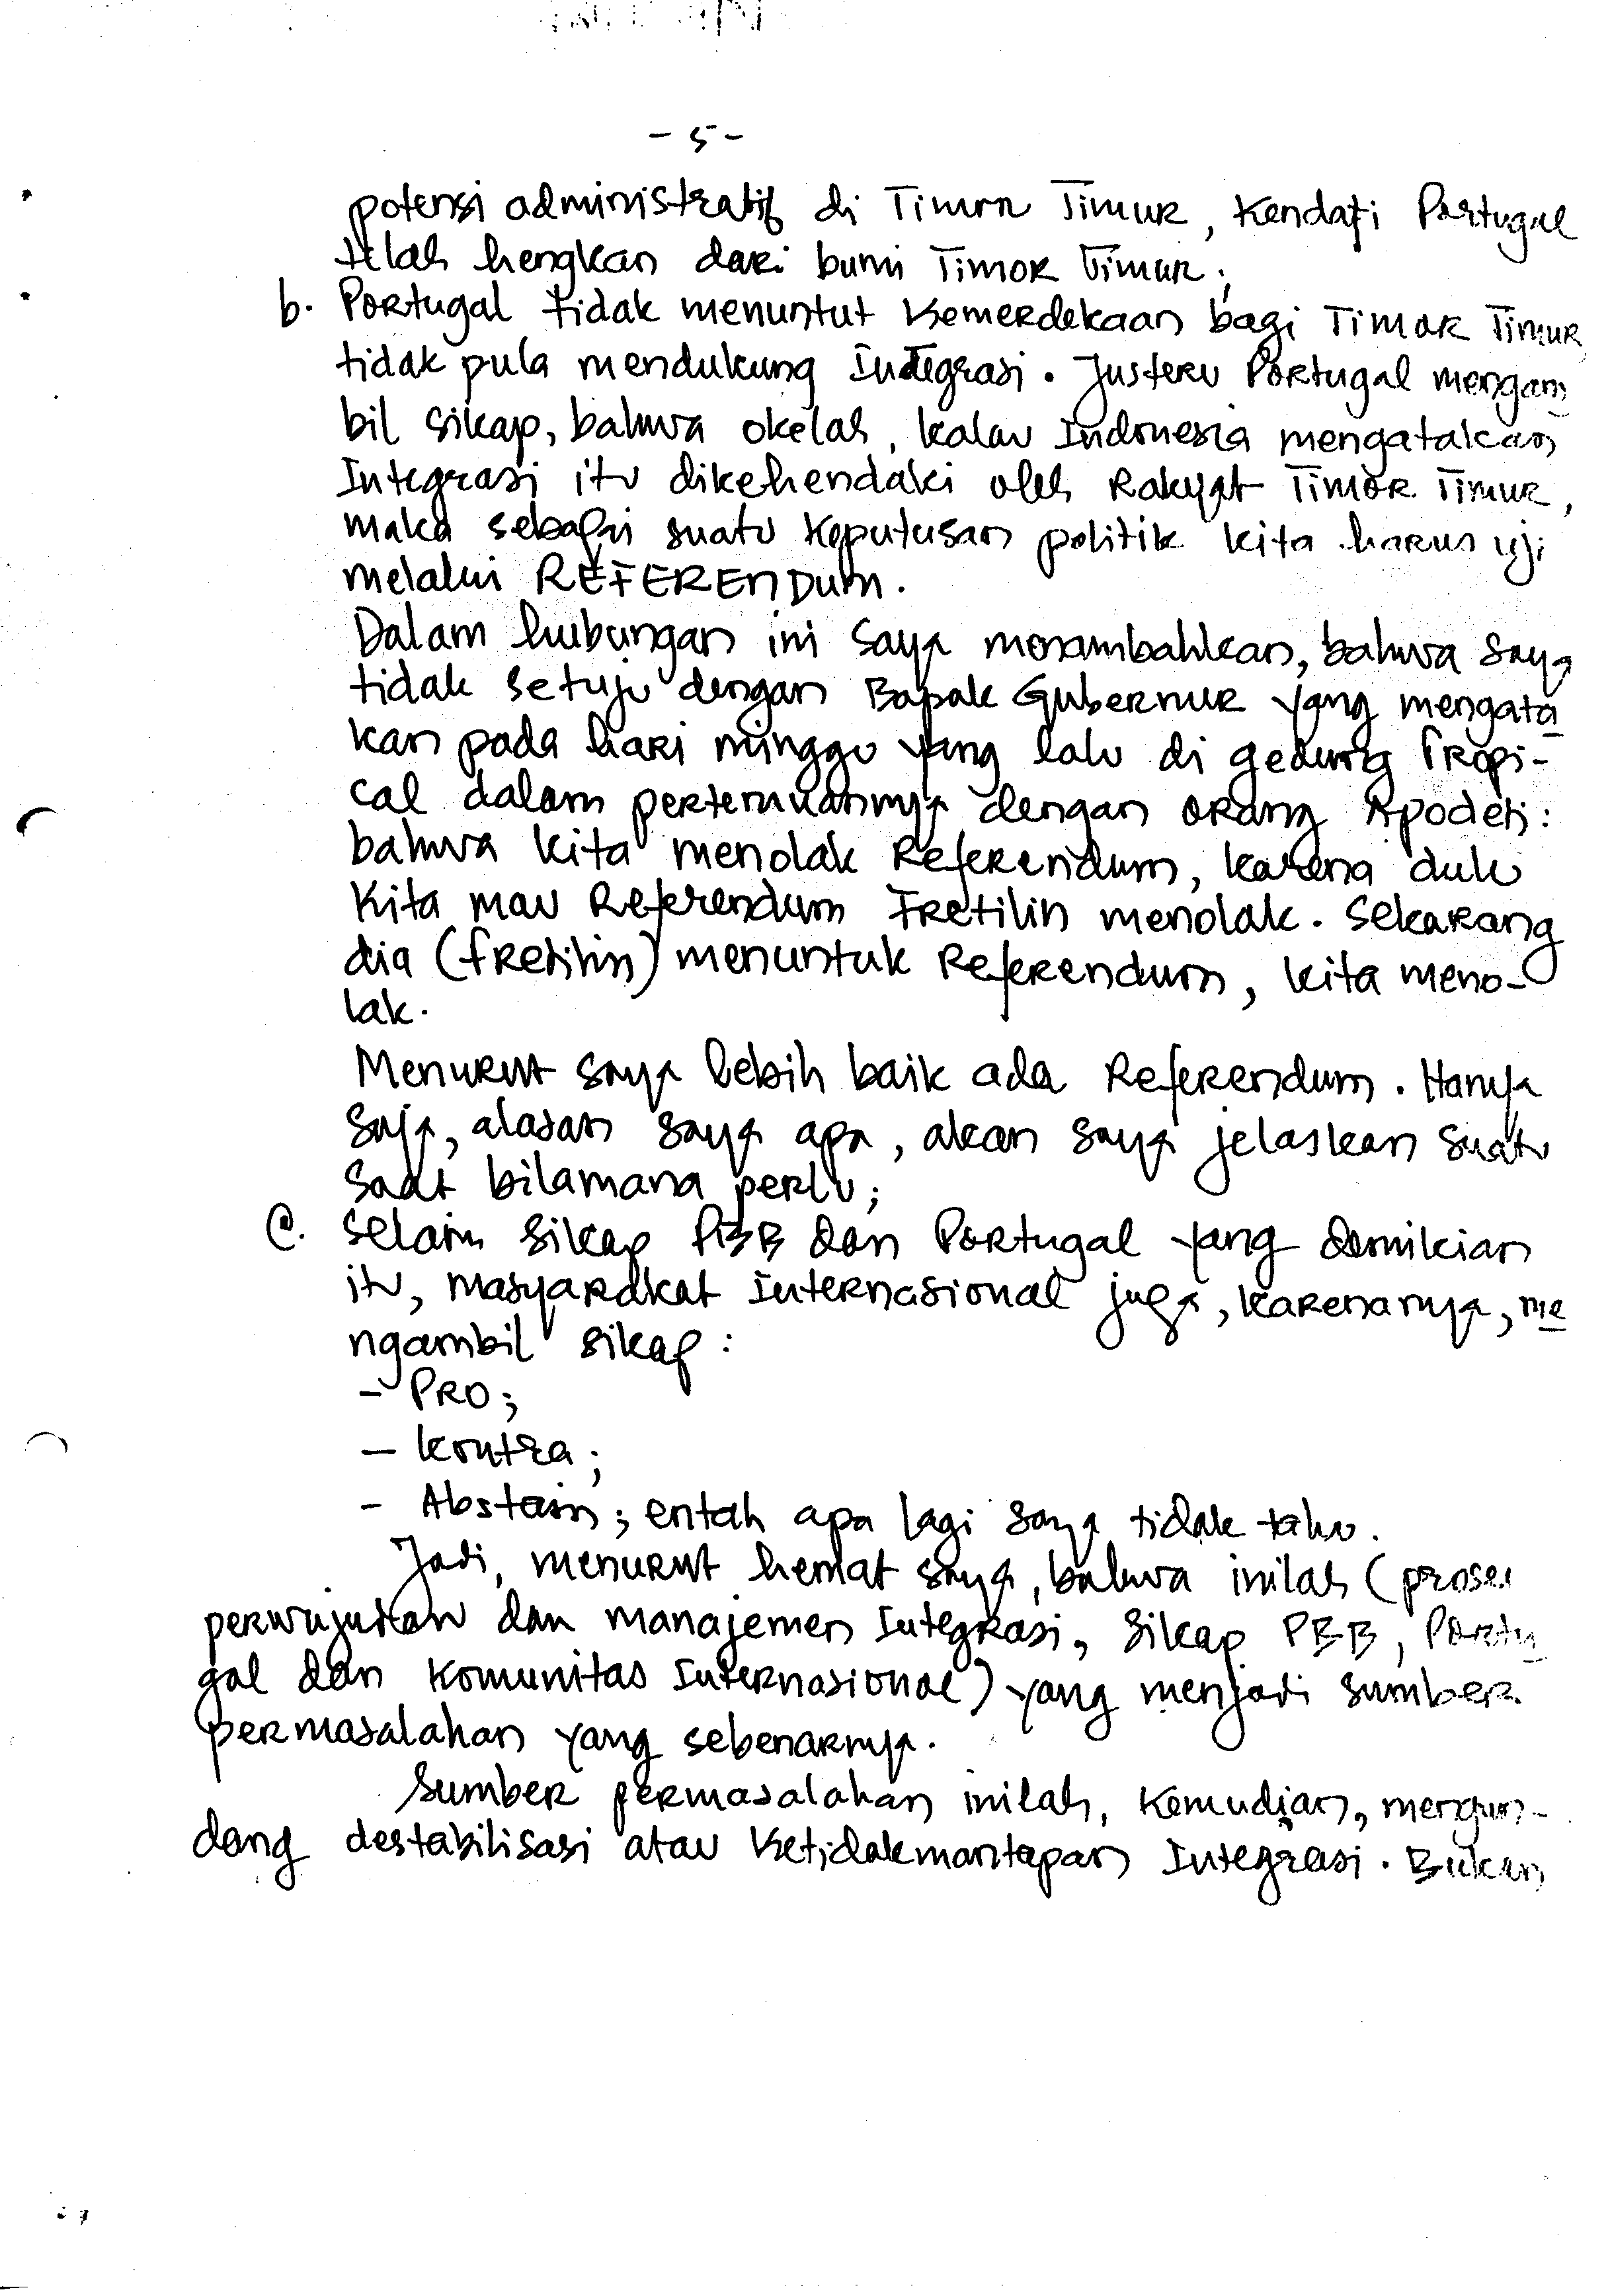 - 5 -
potensi administratif di Timor Timur, Kendati Portugal
telah hengkan dari bumi Timor Timur;
b. Portugal tidak menuntut Kemerdekaan bagi Timor Timur
tidak pula mendukung Integrasi. Justeru Portugal mengam
bil sikap, bahwa okelah, kalau Indonesia mengatakan
Integrasi itu dikehendaki oleh Rakyat Timor Timur,
maka sebagai suatu Keputusan politik kita harus uji
melalui REFERENDUM.
Dalam hubungan ini saya menambahkan, bahwa saya
tidak setuju dengan Bapak Gubernur yang mengata
kan pada hari minggu yang lalu di gedung Tropi-
cal dalam pertemuannya dengan orang Apodeti:
bahwa kita menolak Referendum, karena dulu
Kita mau Referendum Fretilin menolak. Sekarang
dia (fretilin) menuntuk Referendum, kita meno-
lak.
Menurut saya lebih baik ada Referendum. Hanya
saja, alasan saya apa, akan saya jelaskan suatu
saat bilamana perlu;
c. Selain sikap PBB dan Portugal yang demikian
itu, masyarakat Internasional juga, karenanya, me
ngambil sikap:
- PRO;
- Kontra;
- Abstain; entah apa lagi saya tidak tahu.
Jadi, menurut hemat saya, bahwa inilah (proses
perwujudan dan manajemen Integrasi, sikap PBB, Portu
gal dan Komunitas Internasional) yang menjadi sumber
permasalahan yang sebenarnya.
Sumber permasalahan inilah, Kemudian, mengun-
dang destabilisasi atau Ketidakmantapan Integrasi. Bukan